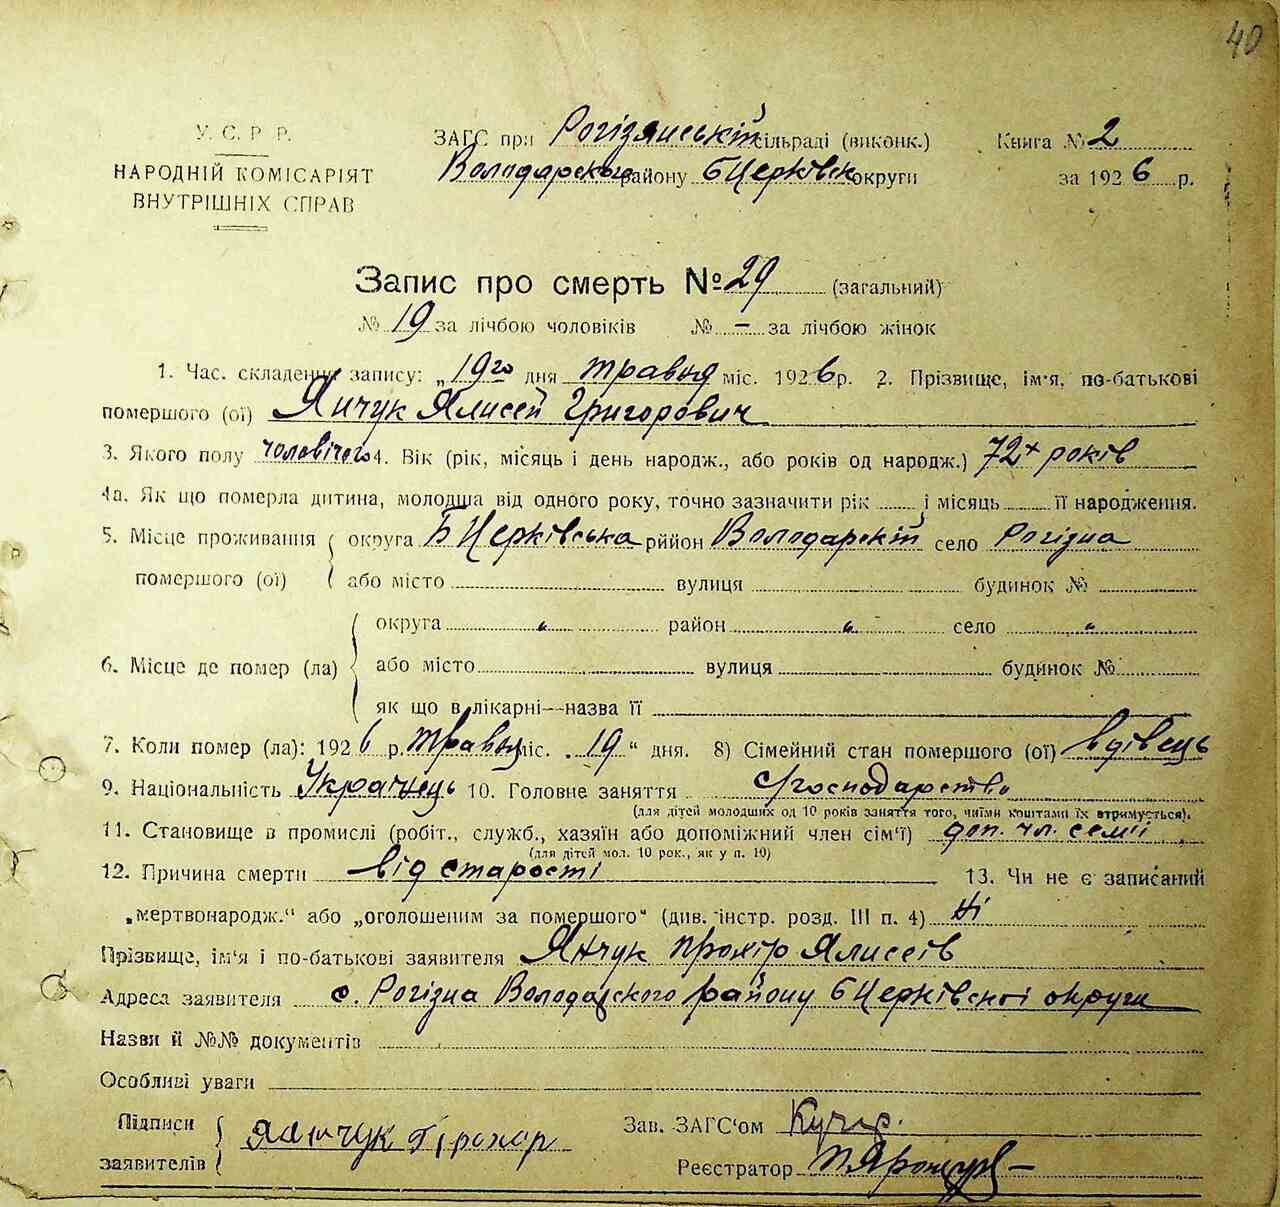 40
У. С. Р. Р.
НАРОДНІЙ КОМІСАРІЯТ
ВНУТРІШНІХ СПРАВ
ЗАГС при Рогізянській сільраді (виконк.)
Володарського району БЦерківск округи
Книга № 2
за 1926 р.
Запис про смерть № 29 (загальний)
№ 19 за лічбою чоловіків № — за лічбою жінок
1. Час. складення запису: „19го дня травня міс. 1926 р. 2. Прізвище, ім'я, по-батькові
помершого (ої) Янчук Ялисей Григорович
3. Якого полу чоловічого 4. Вік (рік, місяць і день народж., або років од народж.) 72х років
4а. Як що померла дитина, молодша від одного року, точно зазначити рік і місяць її народження.
5. Місце проживання помершого (ої) { округа БЦерківська рийон Володарскій село Рогізна
або місто вулиця будинок №
6. Місце де помер (ла) { округа " район " село "
або місто вулиця будинок №
як що в лікарні—назва її
7. Коли помер (ла): 1926 р. травня міс. „19" дня. 8) Сімейний стан помершого (ої) вдівець
9. Національність Украінець 10. Головне заняття с/господарство
(для дітей молодших од 10 років заняття того, чиїми коштами їх втримується).
11. Становище в промислі (робіт., служб., хазяїн або допоміжний член сім'ї) доп. чл. семʼі
(для дітей мол. 10 рок., як у п. 10)
12. Причина смерти від старості 13. Чи не є записаний
„мертвонародж.“ або „оголошеним за помершого“ (див. інстр. розд. III п. 4) Ні
Прізвище, ім'я і по-батькові заявителя Янчук Прохір Ялисеів
Адреса заявителя с. Рогізна Володарского району БЦерківскоі округи
Назви й №№ документів
Особливі уваги
Підписи заявителів { Янчук Прохор
Зав. ЗАГС'ом Кучер.
Реєстратор